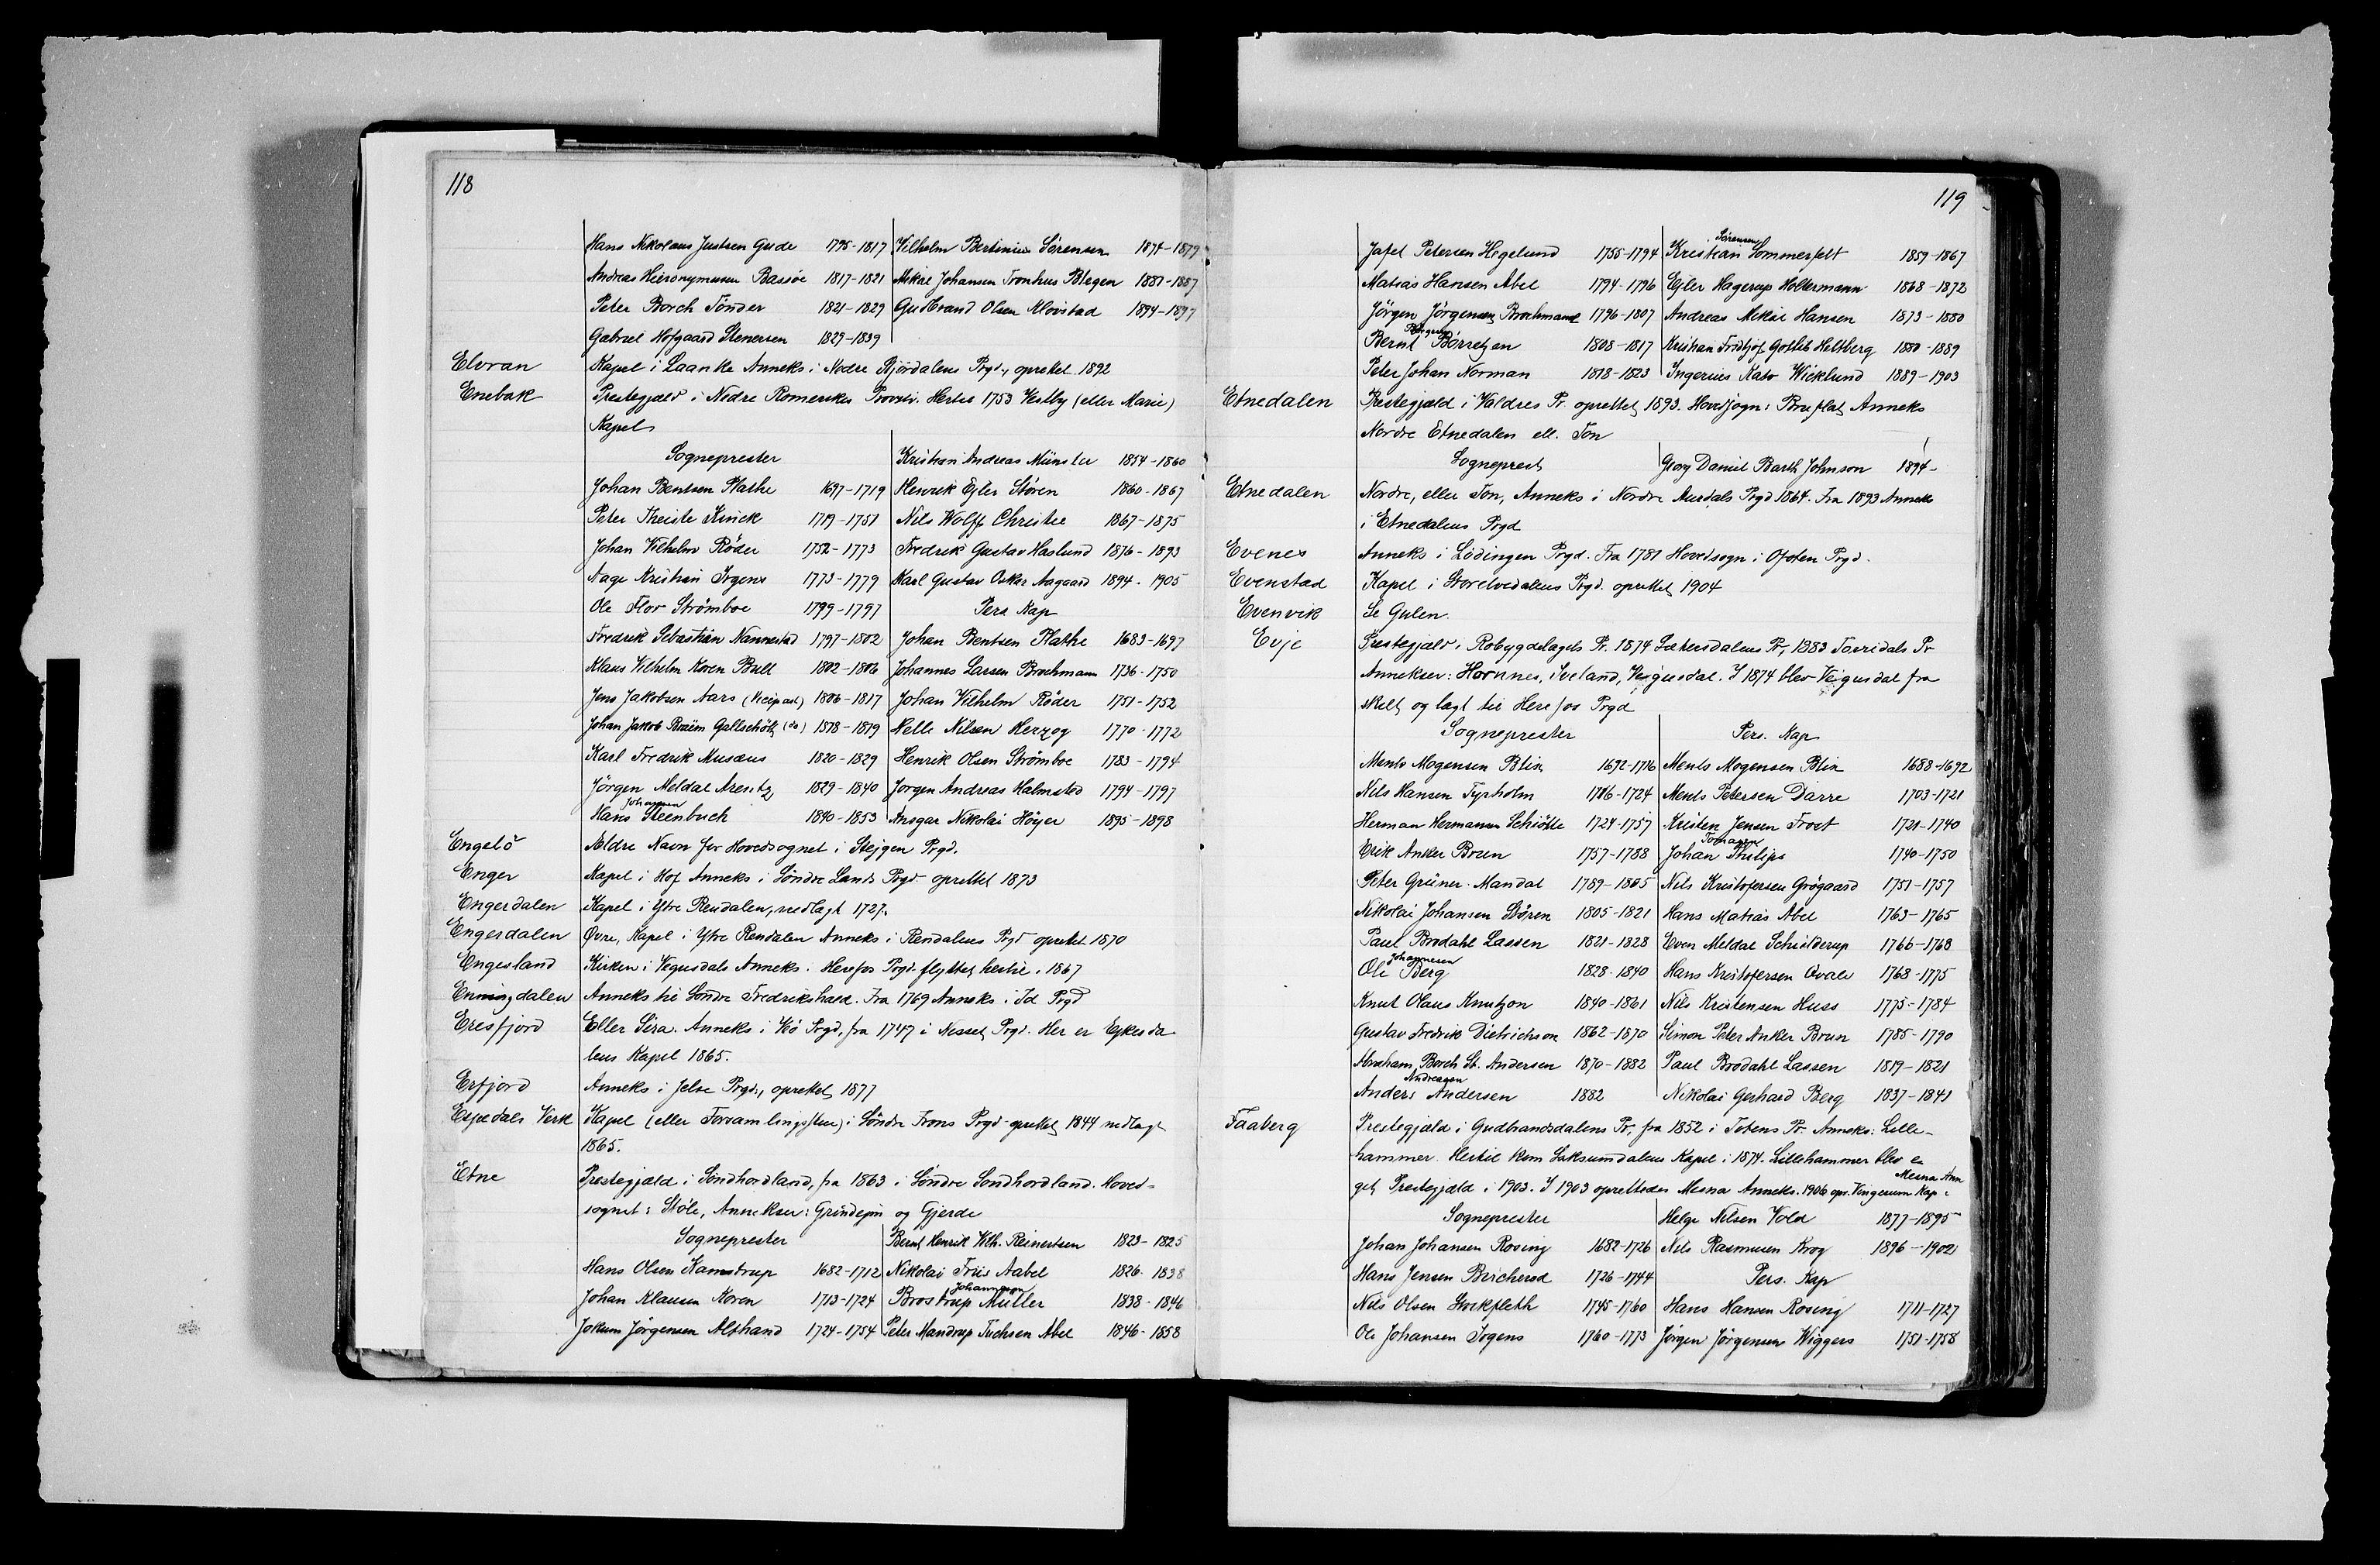 118
Hans Nikolaus Justsen Gude 1795-1817
Andreas Hieronymusen Bassöe 1817-1821
Peter Borch Tönder 1821-1829
Gabriel Hofgaard Stenersen 1829-1839
Vilhelm Bertinius Sörensen 1874-1879
Mikal Johansen Tronhus Blegen 1881-1887
Gudbrand Olsen Alovstad 1894-1897
Elvran Kapel i Laanke Anneks i Nedre Stjördalens Prgd., oprettet 1892
Enebak Prestegjæld i Nedre Romerikes Provsti. Hertil 1753 Vestby (eller Marie)
Kapel
Sogneprester
Johan Bentsen Plathe 1697-1719
Peter Theiste Kinck 1719-1751
Johan Vilhelm Röder 1752-1773
Aage Kristian Irgens 1773-1779
Ole Flor Strömboe 1799-1797
Fredrik Sebastian Nannestad 1797-1802
Klaus Vilhelm Koren Bull 1802-1806
Jens Jakobsen Aars (Vicepast) 1806-1817
Johan Jakob Bruun Gallschötz (do) 1818-1819
Karl Fredrik Musæus 1820-1829
Jörgen Meldal Arentz 1829-1840
Johansen
Hans Steenbuch 1840-1853
Kristian Andreas Münster 1854-1860
Henrik Ejler Stören 1860-1867
Nils Wolff Christie 1867-1875
Fredrik Gustav Haslund 1876-1893
Karl Gustav Oskar Aagaard 1894-1905
Pers Kap
Johan Bentsen Plathe 1683-1697
Johannes Larsen Brochmann 1736-1750
Johan Vilhelm Röder 1751-1752
Helle Nilsen Herzog 1770-1772
Henrik Olsen Strömboe 1783-1794
Jörgen Andreas Halmsted 1794-1797
Ansgar Nikolai Höyer 1895-1898
Engelö Ældre Navn for Hovedsognet i Stejgen Prgd.
Enger Kapel i Hof Anneks i Söndre Lands Prgd. oprettet 1873
Engerdalen Kapel i Ytre Rendalen, nedlagt 1727.
Engerdalen Øvre, Kapel i Ytre Rendalen Anneks i Rendalens Prgd oprettet 1870
Engesland Kirken i Vegusdals Anneks i Herefos Prgd. flyttet hertil i 1867
Enningdalen Anneks til Söndre Fredrikshald. Fra 1769 Anneks i Id Prgd
Eresfjord Eller Sira. Anneks i Veö Prgd, fra 1747 i Nesset Prgd. Her er Ejkesda
lens Kapel 1865.
Erfjord Anneks i Jelse Prgd., oprettet 1877
Espedals Verk Kapel (eller Forsamlingsstue) i Söndre Frons Prgd oprettet 1844 nedlagt
1865.
Etne Prestegjæld i Söndhordland, fra 1863 i Söndre Söndhordland. Hoved-
sognet: Stöle, Annekser: Grindejm og Gjerde
Sogneprester
Hans Olsen Kamstrup 1682-1712
Johan Klausen Koren 1713-1724
Jokum Jörgensen Alsthand 1724-1754
Bernt Henrik Vilh. Reinertsen 1823-1825
Nikolai Friis Aabel 1826-1838
Johannesen
Brostrup Müller 1838-1846
Peter Mandrup Tuchsen Abel 1846-1858
119
Jafet Petersen Hegelund 1755-1794
Matias Hansen Abel 1794-1796
Jörgen Jörgensen Brochmand 1796-1807
Bernt Börretzen 1808-1817
Peter Johan Norman 1818-1823
Sörensen
Kristian Sommerfelt 1859-1867
Ejler Hagerup Holtermann 1868-1872
Andreas Mikal Hansen 1873-1880
Kristian Fridtjof Gotlib Heltberg 1880-1889
Ingerius Kato Wicklund 1889-1903
Etnedalen Prestegjæld i Valdres Pr. oprettet 1893. Hovedsogn: Bruflat, Anneks
Nordre Etnedalen ell. Ton
Sogneprest
Georg Daniel Barth Johnson 1894-
Etnedalen Nordre, eller Ton, Anneks i Nordre Aurdals Prgd 1864. Fra 1893 Anneks
i Etnedalens Prgd
Evenes Anneks i Lödingen Prgd. Fra 1781 Hovedsogn i Ofoten Prgd.
Evenstad Kapel i Storelvedalens Prgd. oprettet 1904
Evenvik Se Gulen.
Evje Prestegjæld i Robygdelagets Pr. 1874 Sætersdalens Pr, 1883 Torridals Pr
Annekser: Hornnes, Iveland, Vegusdal. I 1874 blev Vegusdal fra
skilt og lagt til Herefos Prgd
Sogneprester
Ments Mogensen Blix 1692-1716
Nils Hansen Tyrholm 1716-1724
Herman Hermansen Schiötte 1724-1757
Erik Anker Brun 1757-1788
Peter Grüner Mandal 1789-1805
Nikolai Johansen Stören 1805-1821
Paul Brodahl Lassen 1821-1828
Johannesen
Ole Berg 1828-1840
Knut Olaus Knutzon 1840-1861
Gustav Fredrik Dietrichson 1862-1870
Abraham Borch St. Andersen 1870-1882
Andreasen
Anders Andersen 1882
Pers. Kap
Ments Mogensen Blix 1688-1692
Ments Petersen Darre 1703-1721
Kristen Jensen Frost 1721-1740
Tomassen
Johan Philips 1740-1750
Nils Kristofersen Grögaard 1751-1757
Hans Matias Abel 1763-1765
Even Meldal Schielderup 1766-1768
Hans Kristofersen Qvale 1768-1775
Nils Kristensen Huss 1775-1784
Simon Peter Anker Brun 1785-1790
Paul Brodahl Lassen 1819-1821
Nikolai Gerhard Berg 1837-1841
Faaberg Prestegjæld i Gudbrandsdalens Pr, fra 1852 i Totens Pr. Anneks: Lille-
hammer. Hertil kom Saksumdalens Kapel i 1874. Lillehammer blev e
Mesna Ann
get Prestegjæld i 1903. I 1903 oprettedes Mesna Anneks. 1906 opr. Vingerum Kap i
Sogneprester
Johan Johansen Rosing 1682-1726
Hans Jensen Bircherod 1726-1744
Nils Olsen Stockfleth 1745-1760
Ole Johansen Irgens 1760-1773
Helge Nilsen Vold 1877-1895
Nils Rasmusen Krog 1896-1902
Pers. Kap
Hans Hansen Rosing 1711-1727
Jörgen Jörgensen Wiggers 1751-1758